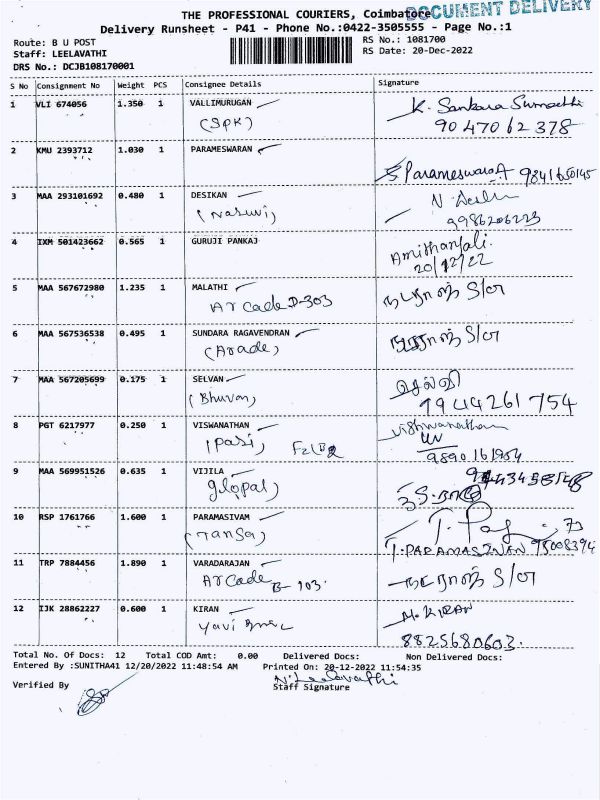 THE PROFESSIONAL COURIERS, Coimbatore
DOCUMENT DELIVERY
Delivery Runsheet - P41 - Phone No.:0422-3505555 - Page No.:1
Route: B U POST
RS No.: 1081700
Staff: LEELAVATHI
RS Date: 20-Dec-2022
DRS No.: DCJB108170001
S No Consignment No Weight PCS Consignee Details Signature
1 VLI 674056 1.350 1 VALLIMURUGAN
K. Sankara Sumathi
(SPK)
9047062378
2 KMU 2393712 1.030 1 PARAMESWARAN
Parameswaran 9841650145
3 MAA 293101692 0.480 1 DESIKAN
(Nasuvi)
9986206223
4 IXM 501423662 0.565 1 GURUJI PANKAJ
Amithanjali.
20/12/22
5 MAA 567672980 1.235 1 MALATHI
Arcade D-303
6 MAA 567536538 0.495 1 SUNDARA RAGAVENDRAN
(Arade)
7 MAA 567205699 0.175 1 SELVAN
செல்வி
(Bhuvan)
7944261754
8 PGT 6217977 0.250 1 VISWANATHAN
Vishwanathan
(Pasi)
9890161904
9 MAA 569951526 0.635 1 VIJILA
glopal)
10 RSP 1761766 1.600 1 PARAMASIVAM
(Tansa)
T.PARAMASIVAN 95008394
11 TRP 7884456 1.890 1 VARADARAJAN
Arcade B-103.
12 IJK 28862227 0.600 1 KIRAN
M. KIRAN
8825680603.
Total No. Of Docs: 12 Total COD Amt: 0.00 Delivered Docs: Non Delivered Docs:
Entered By :SUNITHA41 12/20/2022 11:48:54 AM Printed On: 20-12-2022 11:54:35
N. Leelavathi
Verified By Staff Signature